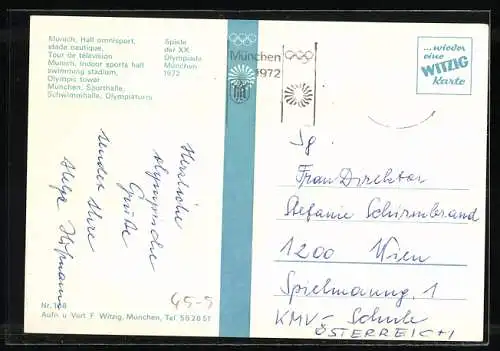 Munich, Hall omnisport,
stade nautique,
Tour de télévision
Munich, Indoor sports hall
swimming stadium,
Olympic tower
München, Sporthalle,
Schwimmhalle, Olympiaturm
Spiele
der XX.
Olympiade
München
1972
München
1972
...wieder
eine
WITZIG
Karte
Herzliche
olympische
Grüße
sendet Ihre
Helga Hofmann
45-9
Sg.
Frau Direktor
Stefanie Schirmbrand
1200 Wien
Spielmanng. 1
KMV - Schule
ÖSTERREICH
Nr. 168
Aufn. u. Verl. F. Witzig, München, Tel 562851